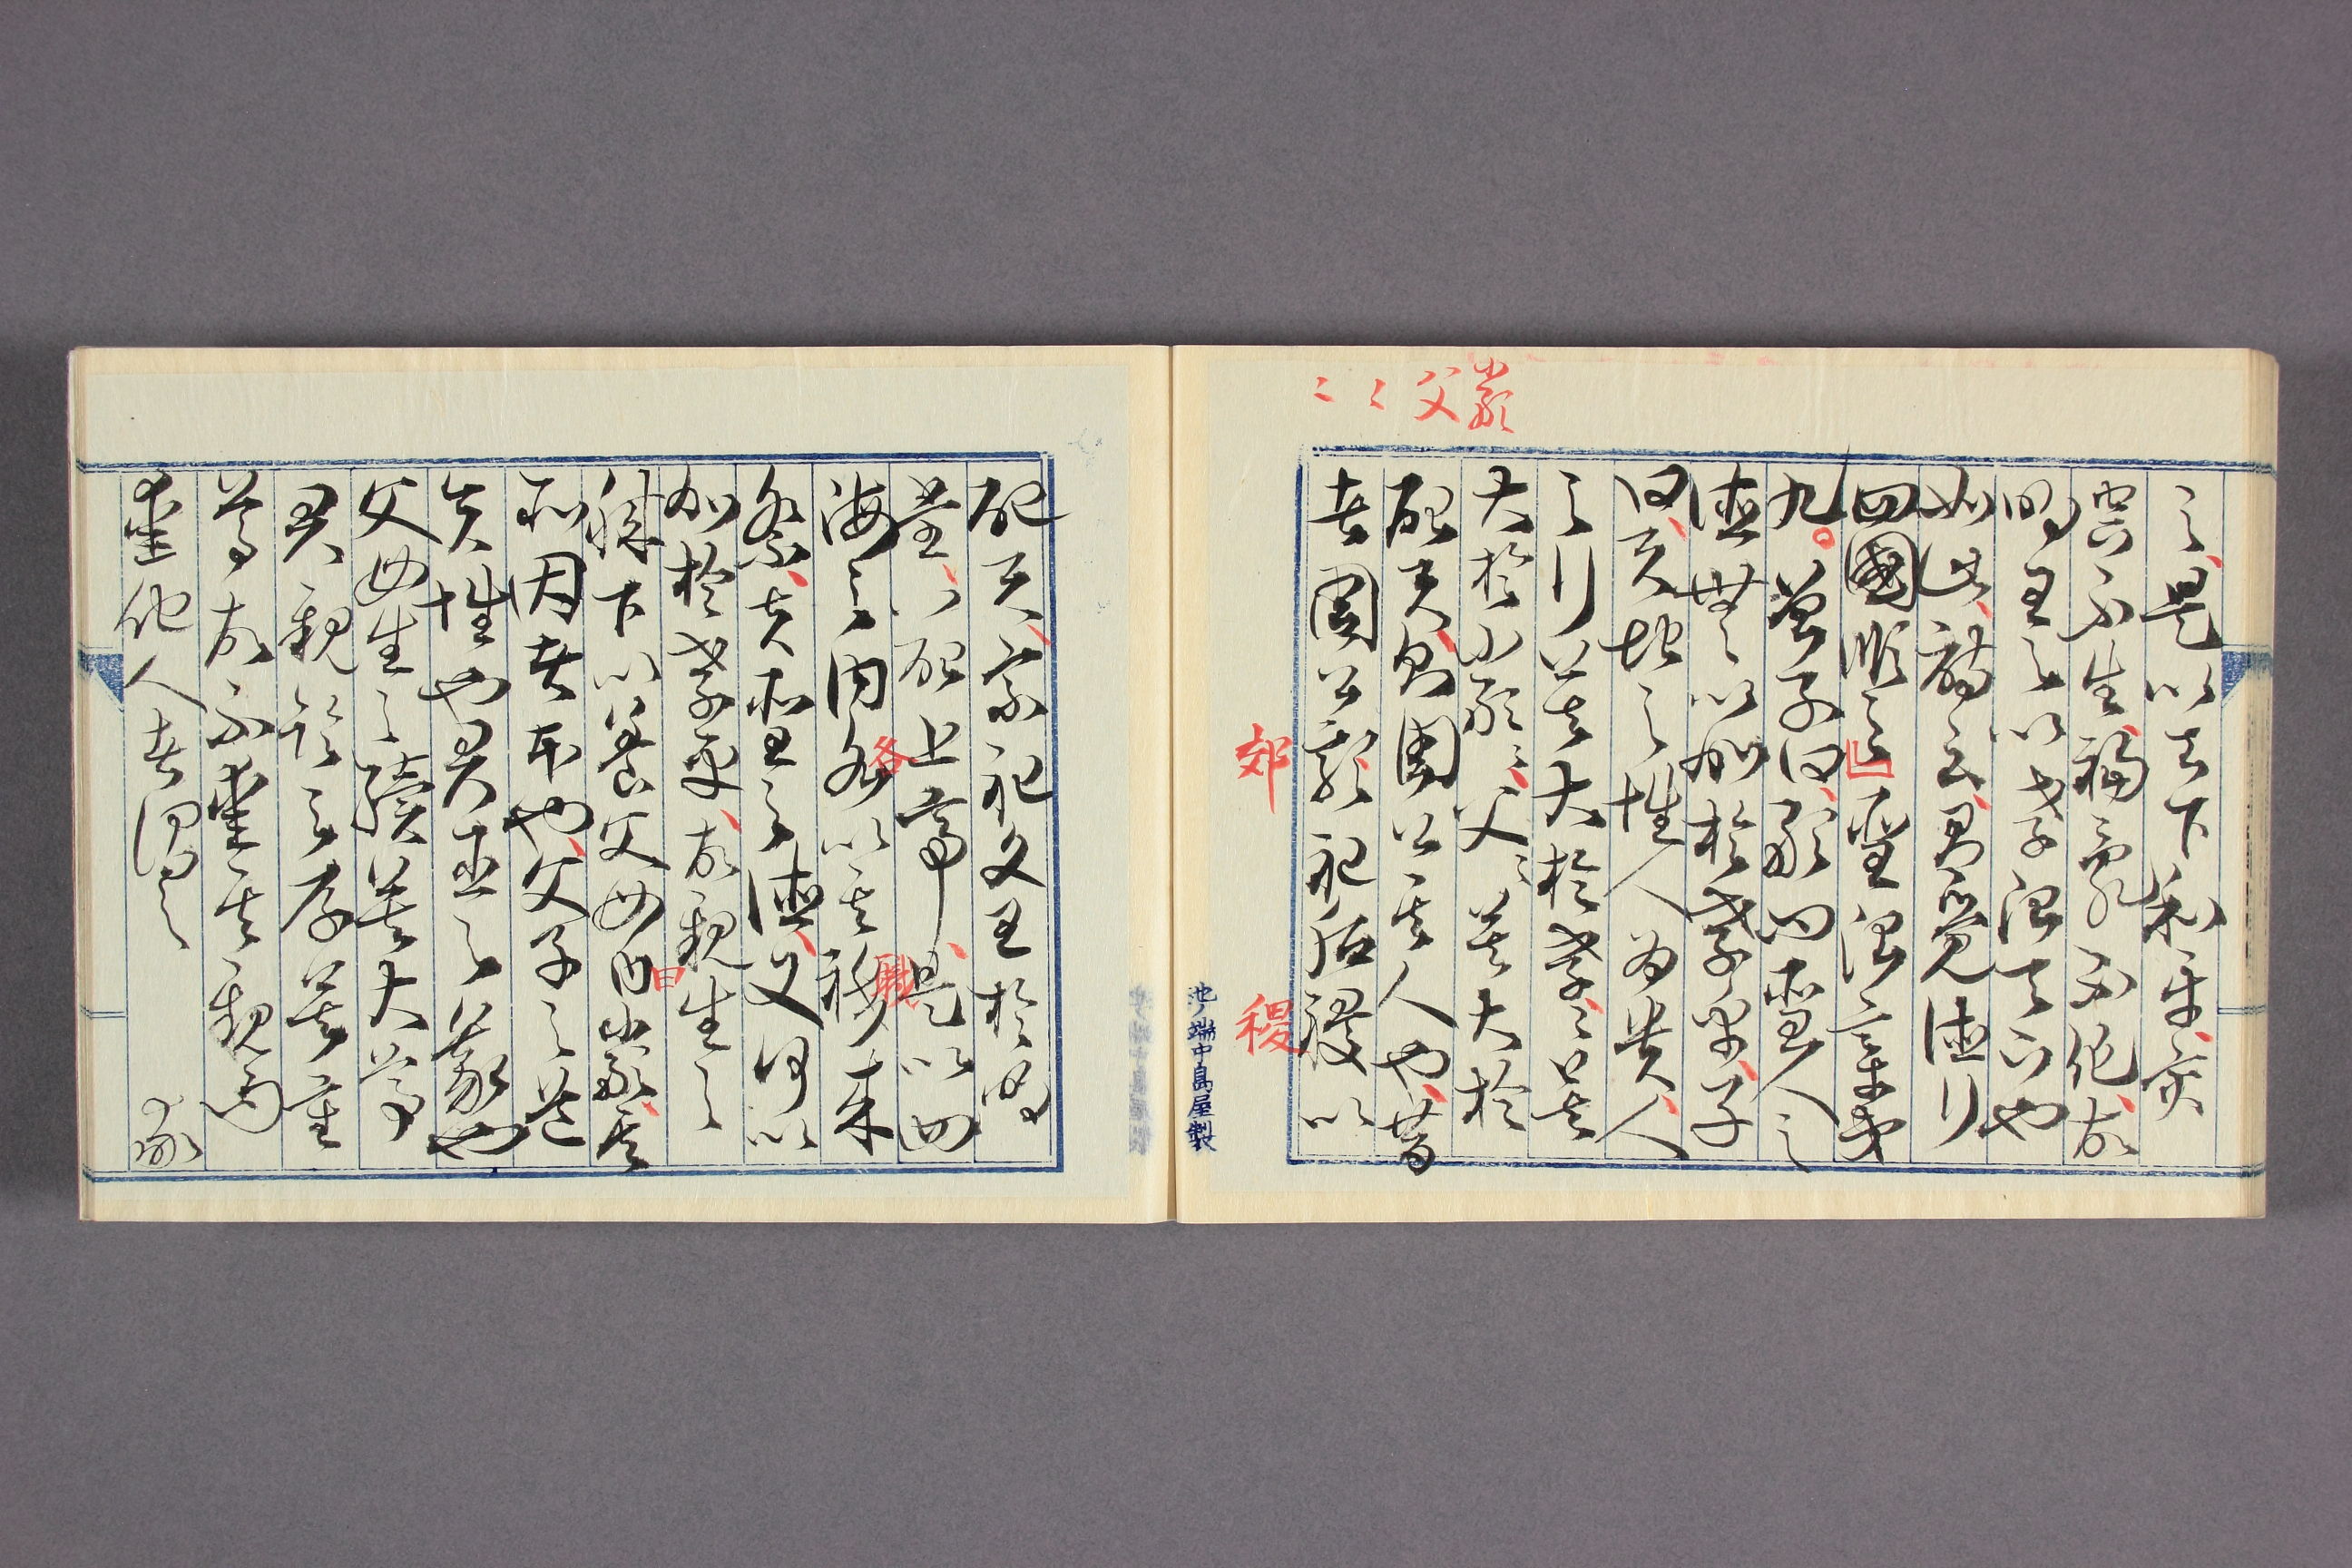 嚴父〻〻
之是以天下和平災
害不生禍亂不作故
明王之以孝治天下也
如此詩云有覺德行
四國順之聖治章第
九曾子曰敢問聖人之
德無以加於孝乎子
曰天地之性人為貴人
之行莫大於孝〻莫
大於嚴〻父〻莫大於
配天則周公其人也昔
者周公郊祀后稷以
郊
稷
池ノ端中島屋製
配天宗祀文王於明
堂以配上帝是以四
各
職
海之內各以其職來
祭夫聖之德又何以
加於孝乎故親生之
日
膝下以養父母日嚴其
所因者本也父子之道
天性也君臣之義也
父母生之續莫大焉
君親臨之厚莫重
焉故不愛其親而
愛他人者謂之